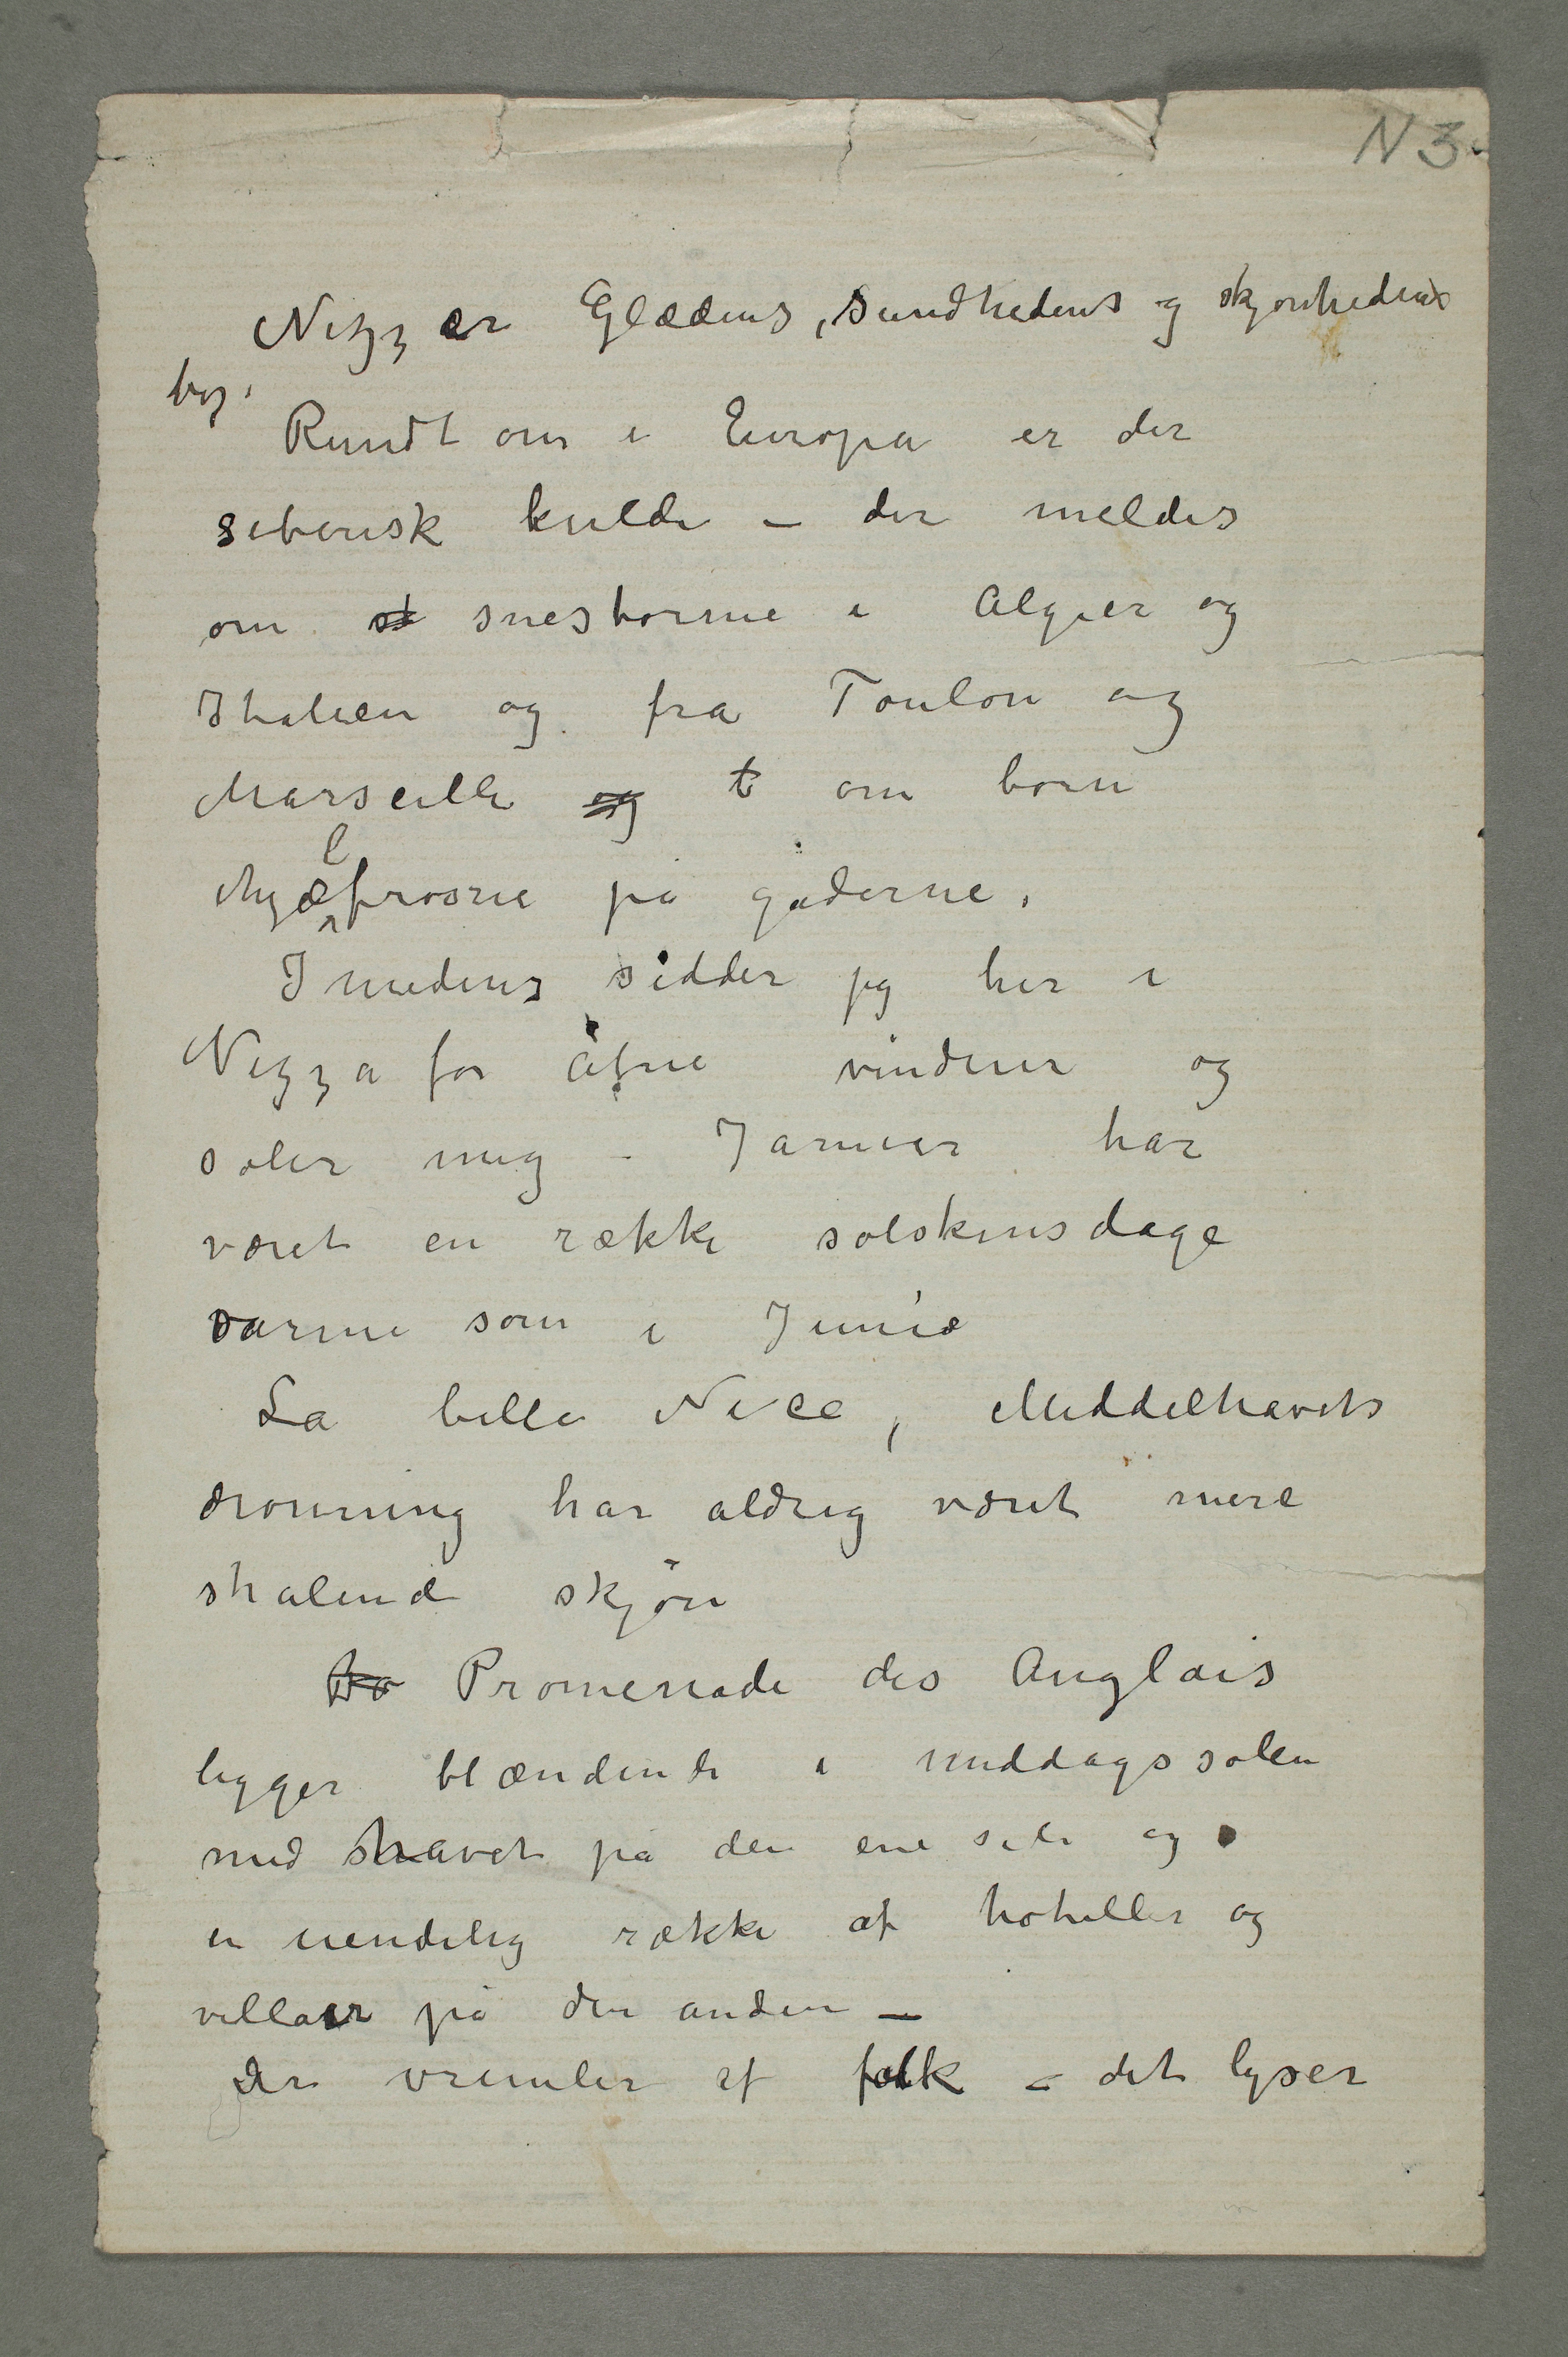 N 3.
Nizz er Glædens, sundhedens og skjønhedens
by.
Rundt om i Europa er der
siberisk kulde – der meldes
om st snestorme i Algier og
Italien og fra Toulon og
Marseille og t om born
ihjælfrosne på gaderne.
Imedens sidder jeg her i
Nizza for åfne vinduer og
soler mig – Januar har
været en række solskinsdage
varme som i Junie
La bella Nice, Middelhavets
dronning har aldrig været mere
stralende skjön
Promenade des Anglais
ligger blændende i middagssolen
med havet på den ene side og
en uendelig række af hoteller og
villaer på den anden –
der vrimler af folk – det lyser